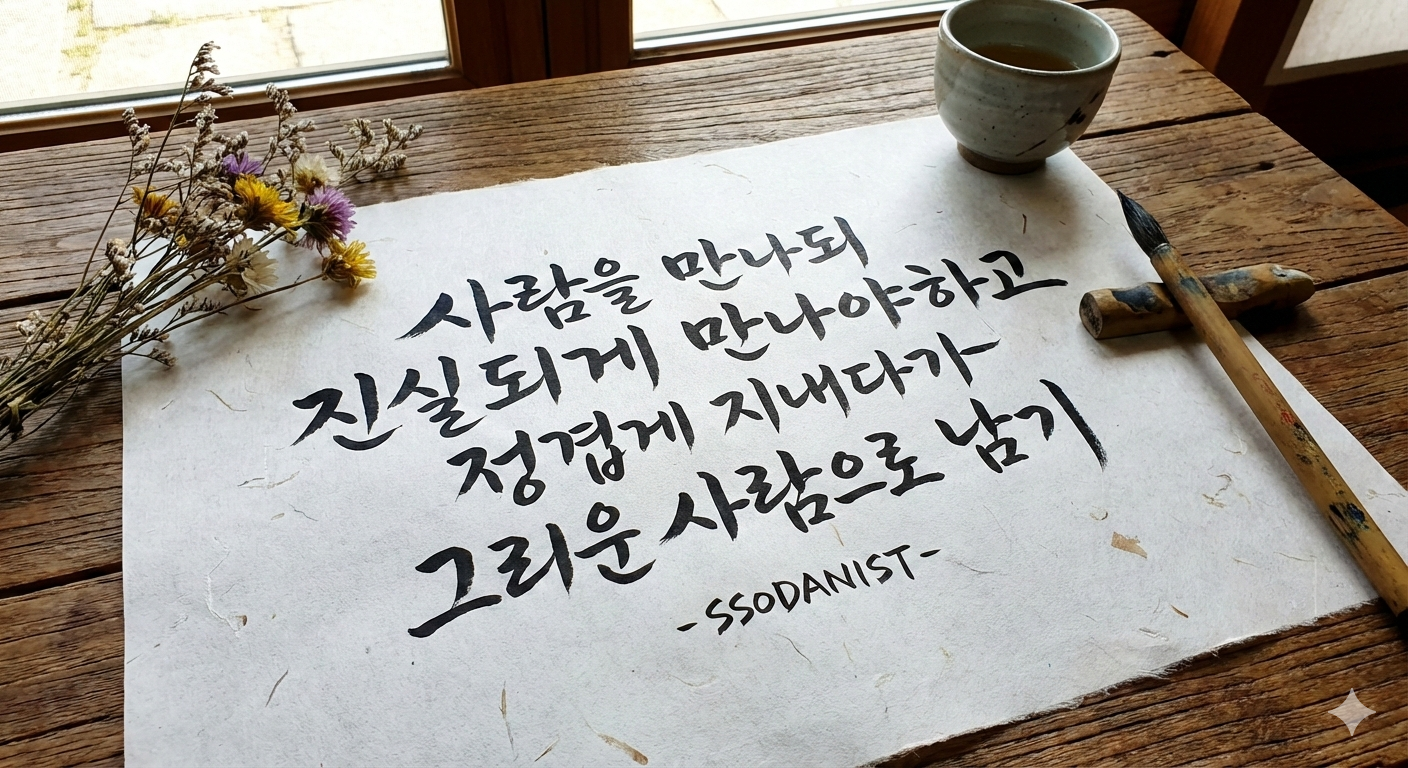 사람을 만나되
진실되게 만나야하고
정겹게 지내다가
그리운 사람으로 남기
-SSODANIST-